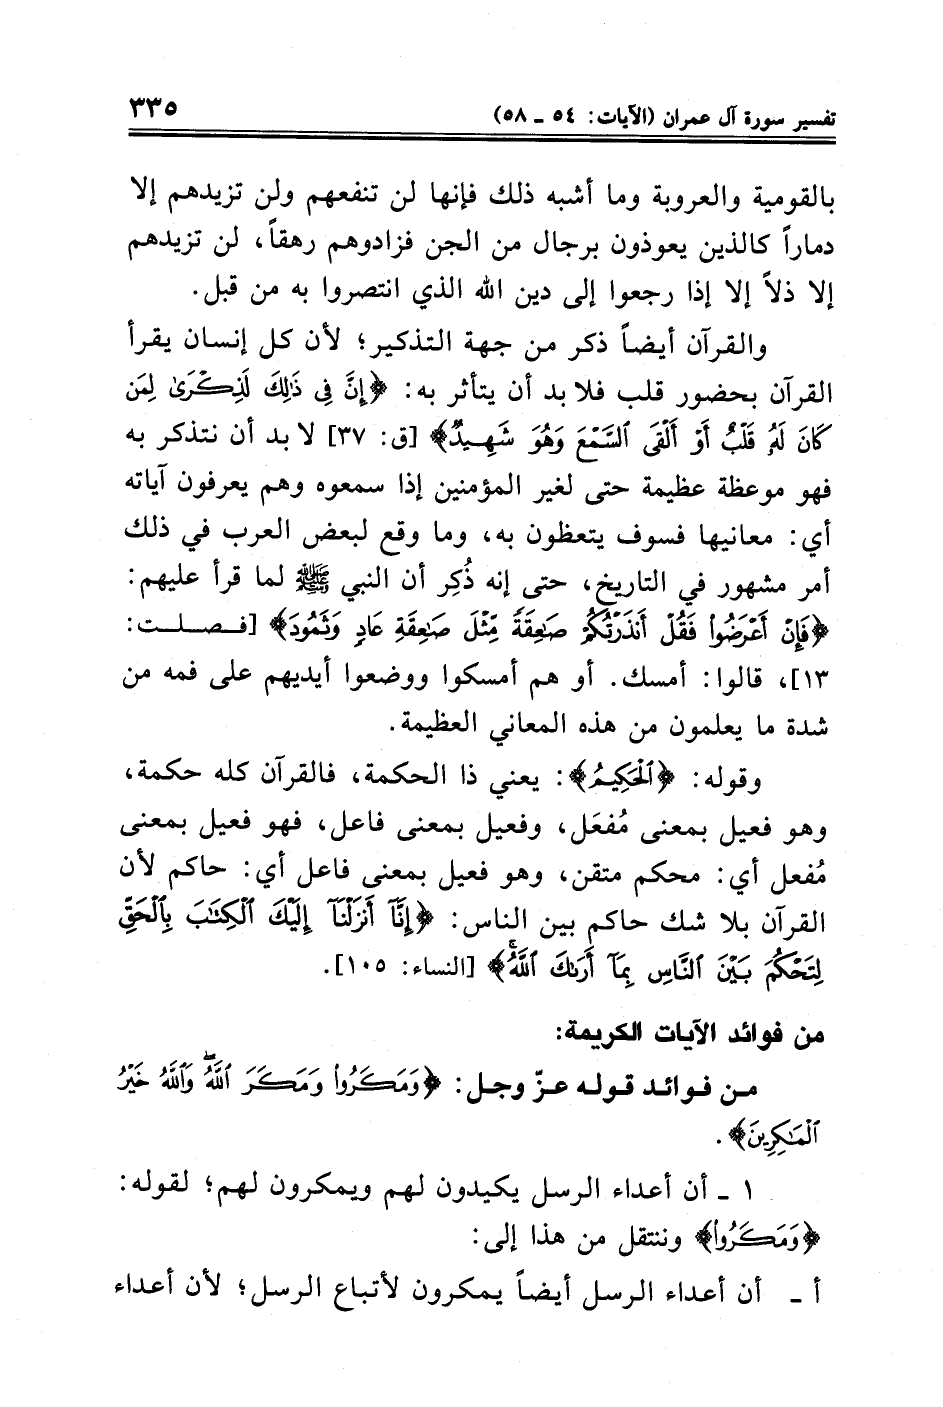 تفسير سورة آل عمران (الآيات: ٥٤ ـ ٥٨) ٣٣٥
بالقومية والعروبة وما أشبه ذلك فإنها لن تنفعهم ولن تزيدهم إلا
دماراً كالذين يعوذون برجال من الجن فزادوهم رهقاً، لن تزيدهم
إلا ذلاً إلا إذا رجعوا إلى دين الله الذي انتصروا به من قبل.
والقرآن أيضاً ذكر من جهة التذكير؛ لأن كل إنسان يقرأ
القرآن بحضور قلب فلا بد أن يتأثر به: ﴿إِنَّ فِي ذَٰلِكَ لَذِكْرَىٰ لِمَن
كَانَ لَهُ قَلْبٌ أَوْ أَلْقَى ٱلسَّمْعَ وَهُوَ شَهِيدٌ﴾ [ق: ٣٧] لا بد أن نتذكر به
فهو موعظة عظيمة حتى لغير المؤمنين إذا سمعوه وهم يعرفون آياته
أي: معانيها فسوف يتعظون به، وما وقع لبعض العرب في ذلك
أمر مشهور في التاريخ، حتى إنه ذُكِر أن النبي ﷺ لما قرأ عليهم:
﴿فَإِنْ أَعْرَضُوا۟ فَقُلْ أَنذَرْتُكُمْ صَٰعِقَةً مِّثْلَ صَٰعِقَةِ عَادٍ وَثَمُودَ﴾ [فـصـلـت:
١٣]، قالوا: أمسك. أو هم أمسكوا ووضعوا أيديهم على فمه من
شدة ما يعلمون من هذه المعاني العظيمة.
وقوله: ﴿ٱلْحَكِيمُ﴾: يعني ذا الحكمة، فالقرآن كله حكمة،
وهو فعيل بمعنى مُفعَل، وفعيل بمعنى فاعل، فهو فعيل بمعنى
مُفعل أي: محكم متقن، وهو فعيل بمعنى فاعل أي: حاكم لأن
القرآن بلا شك حاكم بين الناس: ﴿إِنَّآ أَنزَلْنَآ إِلَيْكَ ٱلْكِتَٰبَ بِٱلْحَقِّ
لِتَحْكُمَ بَيْنَ ٱلنَّاسِ بِمَآ أَرَىٰكَ ٱللَّهُۚ﴾ [النساء: ١٠٥].
من فوائد الآيات الكريمة:
مـن فـوائـد قـولـه عـزّ وجـل: ﴿وَمَكَرُوا۟ وَمَكَرَ ٱللَّهُۖ وَٱللَّهُ خَيْرُ
ٱلْمَٰكِرِينَ﴾.
١ ـ أن أعداء الرسل يكيدون لهم ويمكرون لهم؛ لقوله:
﴿وَمَكَرُوا۟﴾ وننتقل من هذا إلى:
أ ـ أن أعداء الرسل أيضاً يمكرون لأتباع الرسل؛ لأن أعداء